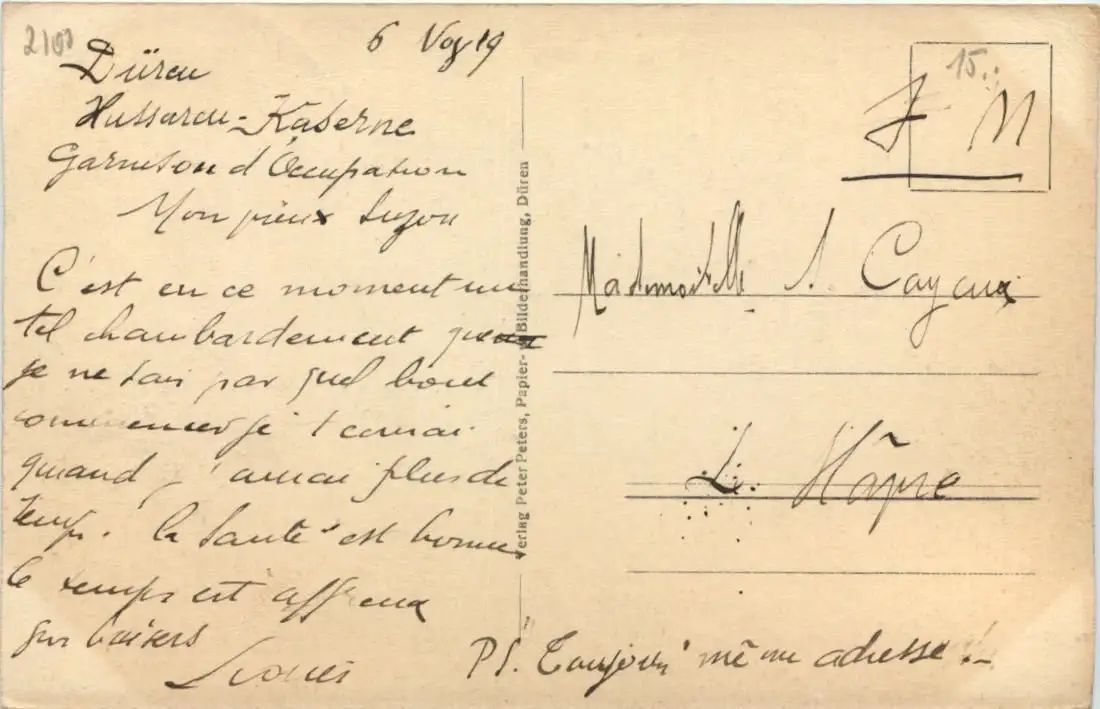 2100
6 Nov 19
Düren
Hussaren-Kaserne
Garnison d'Occupation
Mon vieux Suzon
C'est en ce moment un
tel chambardement que
je ne sais par quel bout
commencer je t'ecrirai
quand j'aurai plus de
temps. la santé est bonne
le temps est affreux
gros baisers
Verlag Peter Peters, Papier- u. Bilderhandlung, Düren
15.
F M
Mademoiselle S. Cayeux
Le Hâvre
PS. Toujours même adresse